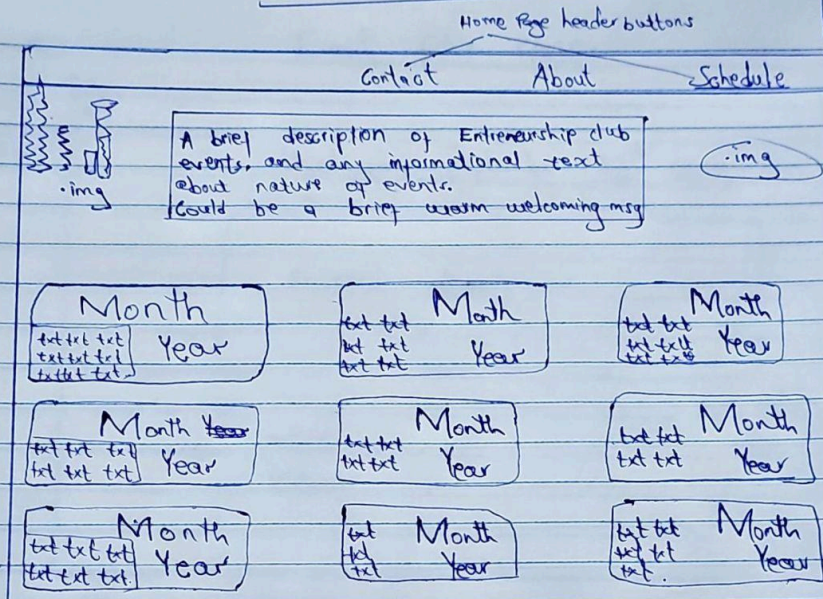 Home Page header buttons
Contact About Schedule
A brief description of Entreneurship club
events, and any informational text
about nature of events.
Could be a brief warm welcoming msg
.img
.img
Month
txt txt txt
txt txt txt
txt txt txt.
Year
Month
txt txt
txt txt
txt txt
Year
Month
txt txt
txt txt
txt txt
Year
Month
txt txt txt
txt txt txt
Year
Month
txt txt
txt txt
Year
Month
txt txt
txt txt
Year
Month
txt txt txt
txt txt txt.
Year
Month
txt
txt
txt
Year
Month
txt txt
txt txt
txt.
Year